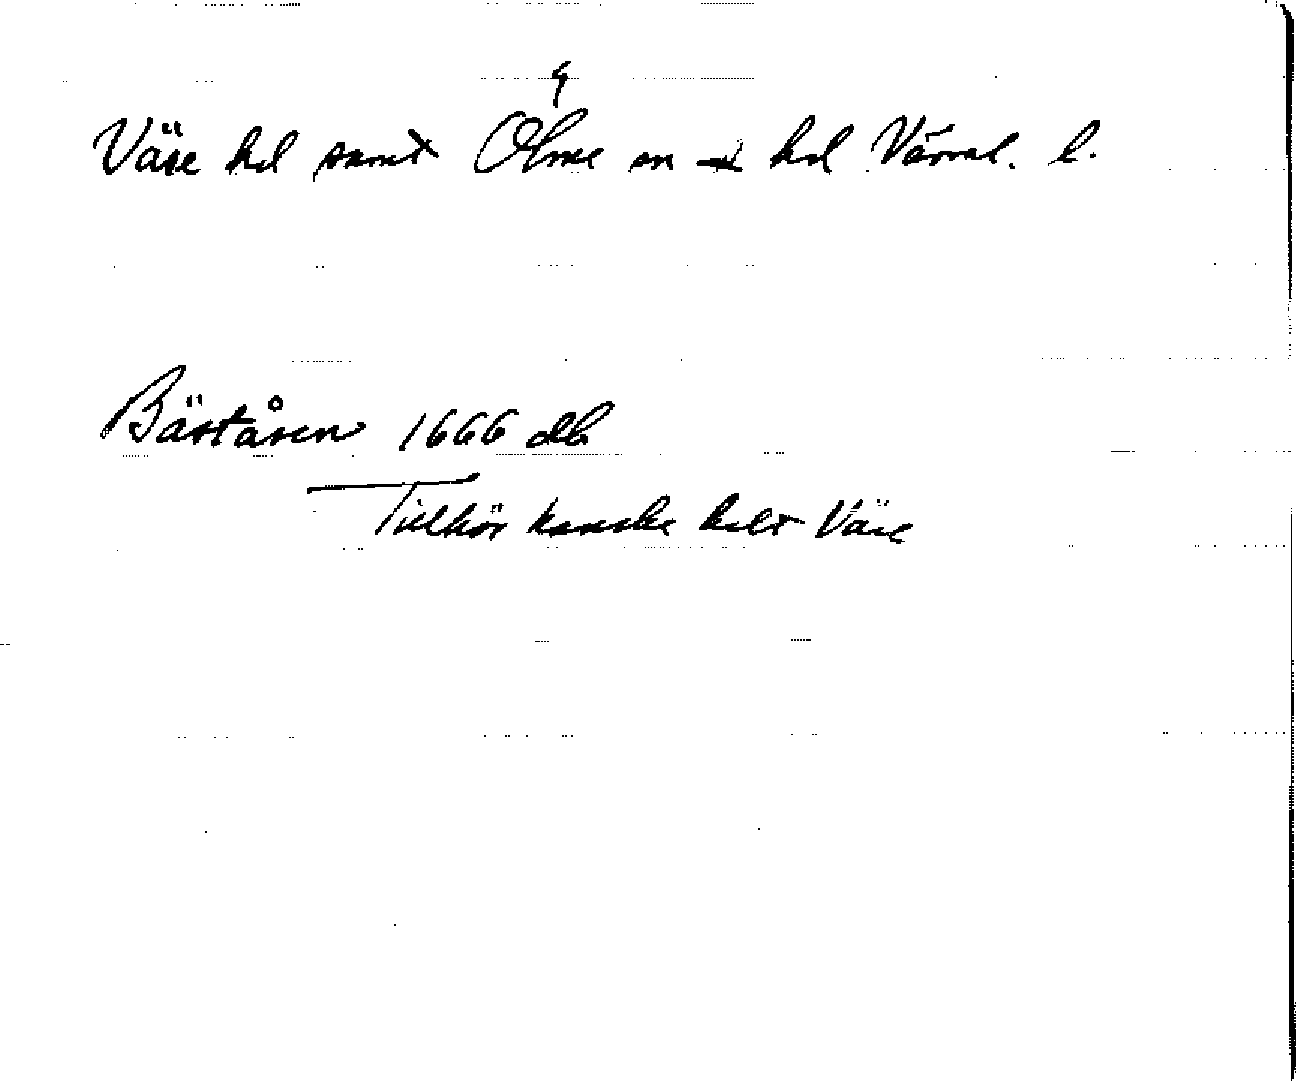 Väse hd samt Ölme sn o hd Värml. l.
Bäståsen 1666 db
Tillhör kanske helt Väse